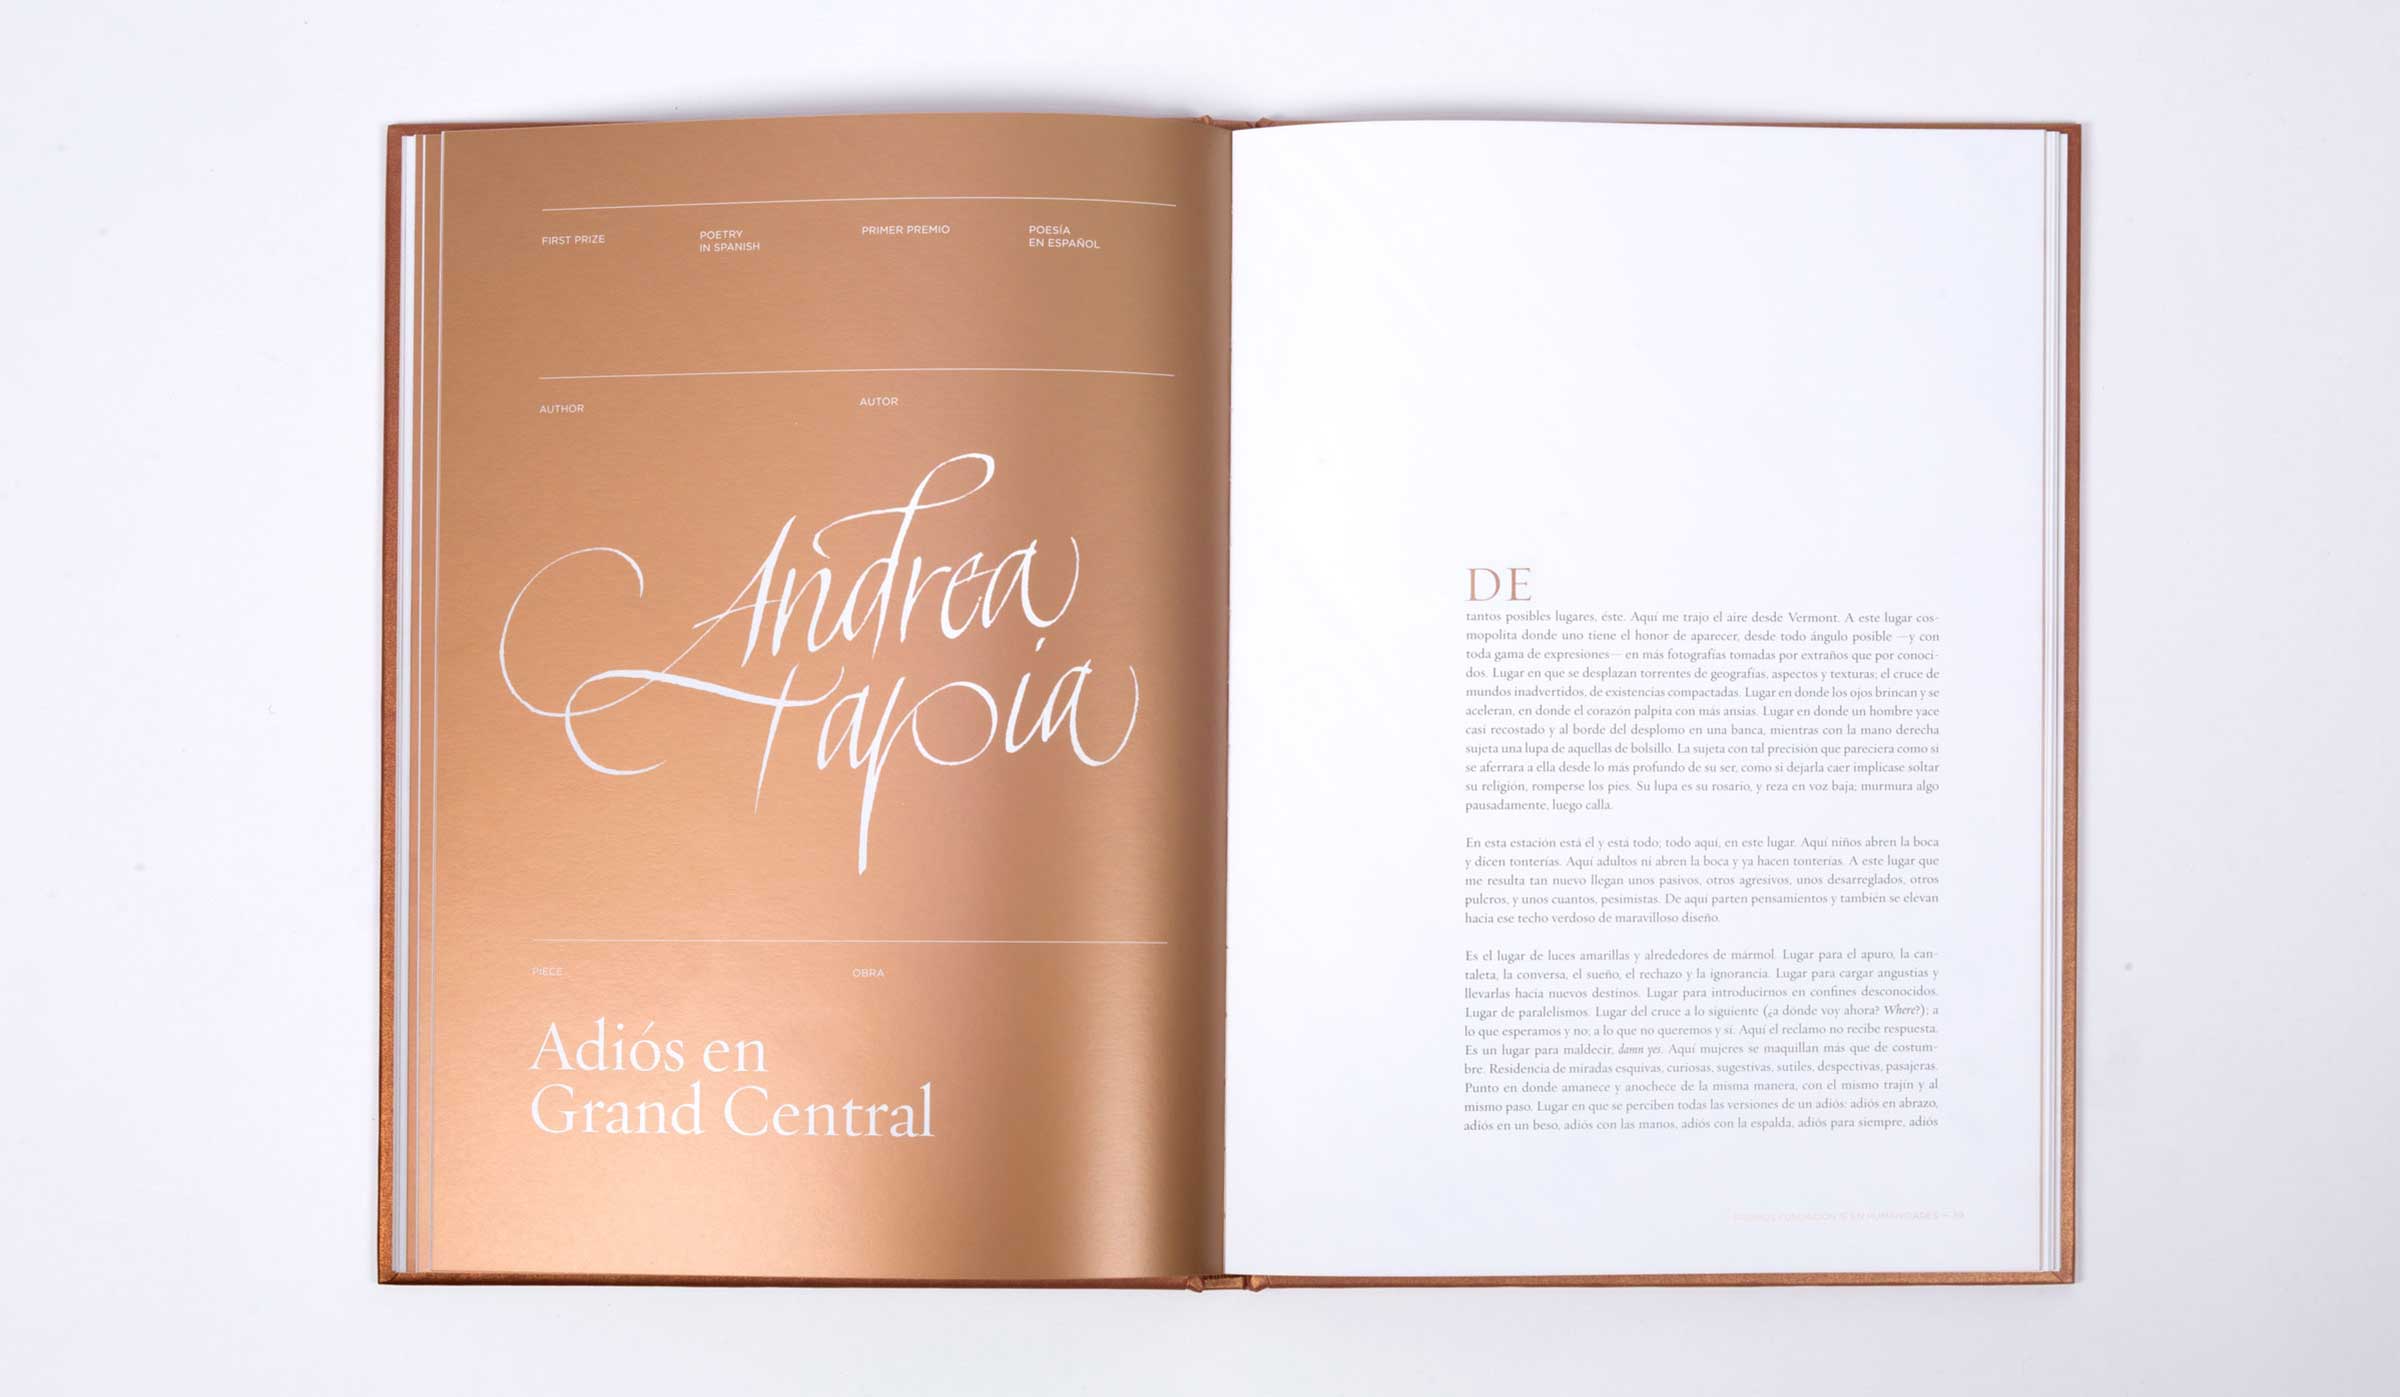 FIRST PRIZE
POETRY
IN SPANISH
PRIMER PREMIO
POESÍA
EN ESPAÑOL
AUTHOR
AUTOR
Andrea
Tapia
PIECE
OBRA
Adiós en
Grand Central
DE
tantos posibles lugares, éste. Aquí me trajo el aire desde Vermont. A este lugar cos-
mopolita donde uno tiene el honor de aparecer, desde todo ángulo posible —y con
toda gama de expresiones— en más fotografías tomadas por extraños que por conoci-
dos. Lugar en que se desplazan torrentes de geografías, aspectos y texturas; el cruce de
mundos inadvertidos, de existencias compactadas. Lugar en donde los ojos brincan y se
aceleran, en donde el corazón palpita con más ansias. Lugar en donde un hombre yace
casi recostado y al borde del desplomo en una banca, mientras con la mano derecha
sujeta una lupa de aquellas de bolsillo. La sujeta con tal precisión que pareciera como si
se aferrara a ella desde lo más profundo de su ser, como si dejarla caer implicase soltar
su religión, romperse los pies. Su lupa es su rosario, y reza en voz baja; murmura algo
pausadamente, luego calla.
En esta estación está él y está todo; todo aquí, en este lugar. Aquí niños abren la boca
y dicen tonterías. Aquí adultos ni abren la boca y ya hacen tonterías. A este lugar que
me resulta tan nuevo llegan unos pasivos, otros agresivos, unos desarreglados, otros
pulcros, y unos cuantos, pesimistas. De aquí parten pensamientos y también se elevan
hacia ese techo verdoso de maravilloso diseño.
Es el lugar de luces amarillas y alrededores de mármol. Lugar para el apuro, la can-
taleta, la conversa, el sueño, el rechazo y la ignorancia. Lugar para cargar angustias y
llevarlas hacia nuevos destinos. Lugar para introducirnos en confines desconocidos.
Lugar de paralelismos. Lugar del cruce a lo siguiente (¿a dónde voy ahora? Where?); a
lo que esperamos y no; a lo que no queremos y sí. Aquí el reclamo no recibe respuesta.
Es un lugar para maldecir, damn yes. Aquí mujeres se maquillan más que de costum-
bre. Residencia de miradas esquivas, curiosas, sugestivas, sutiles, despectivas, pasajeras.
Punto en donde amanece y anochece de la misma manera, con el mismo trajín y al
mismo paso. Lugar en que se perciben todas las versiones de un adiós: adiós en abrazo,
adiós en un beso, adiós con las manos, adiós con la espalda, adiós para siempre, adiós
PREMIOS FUNDACIÓN EN HUMANIDADES — 39